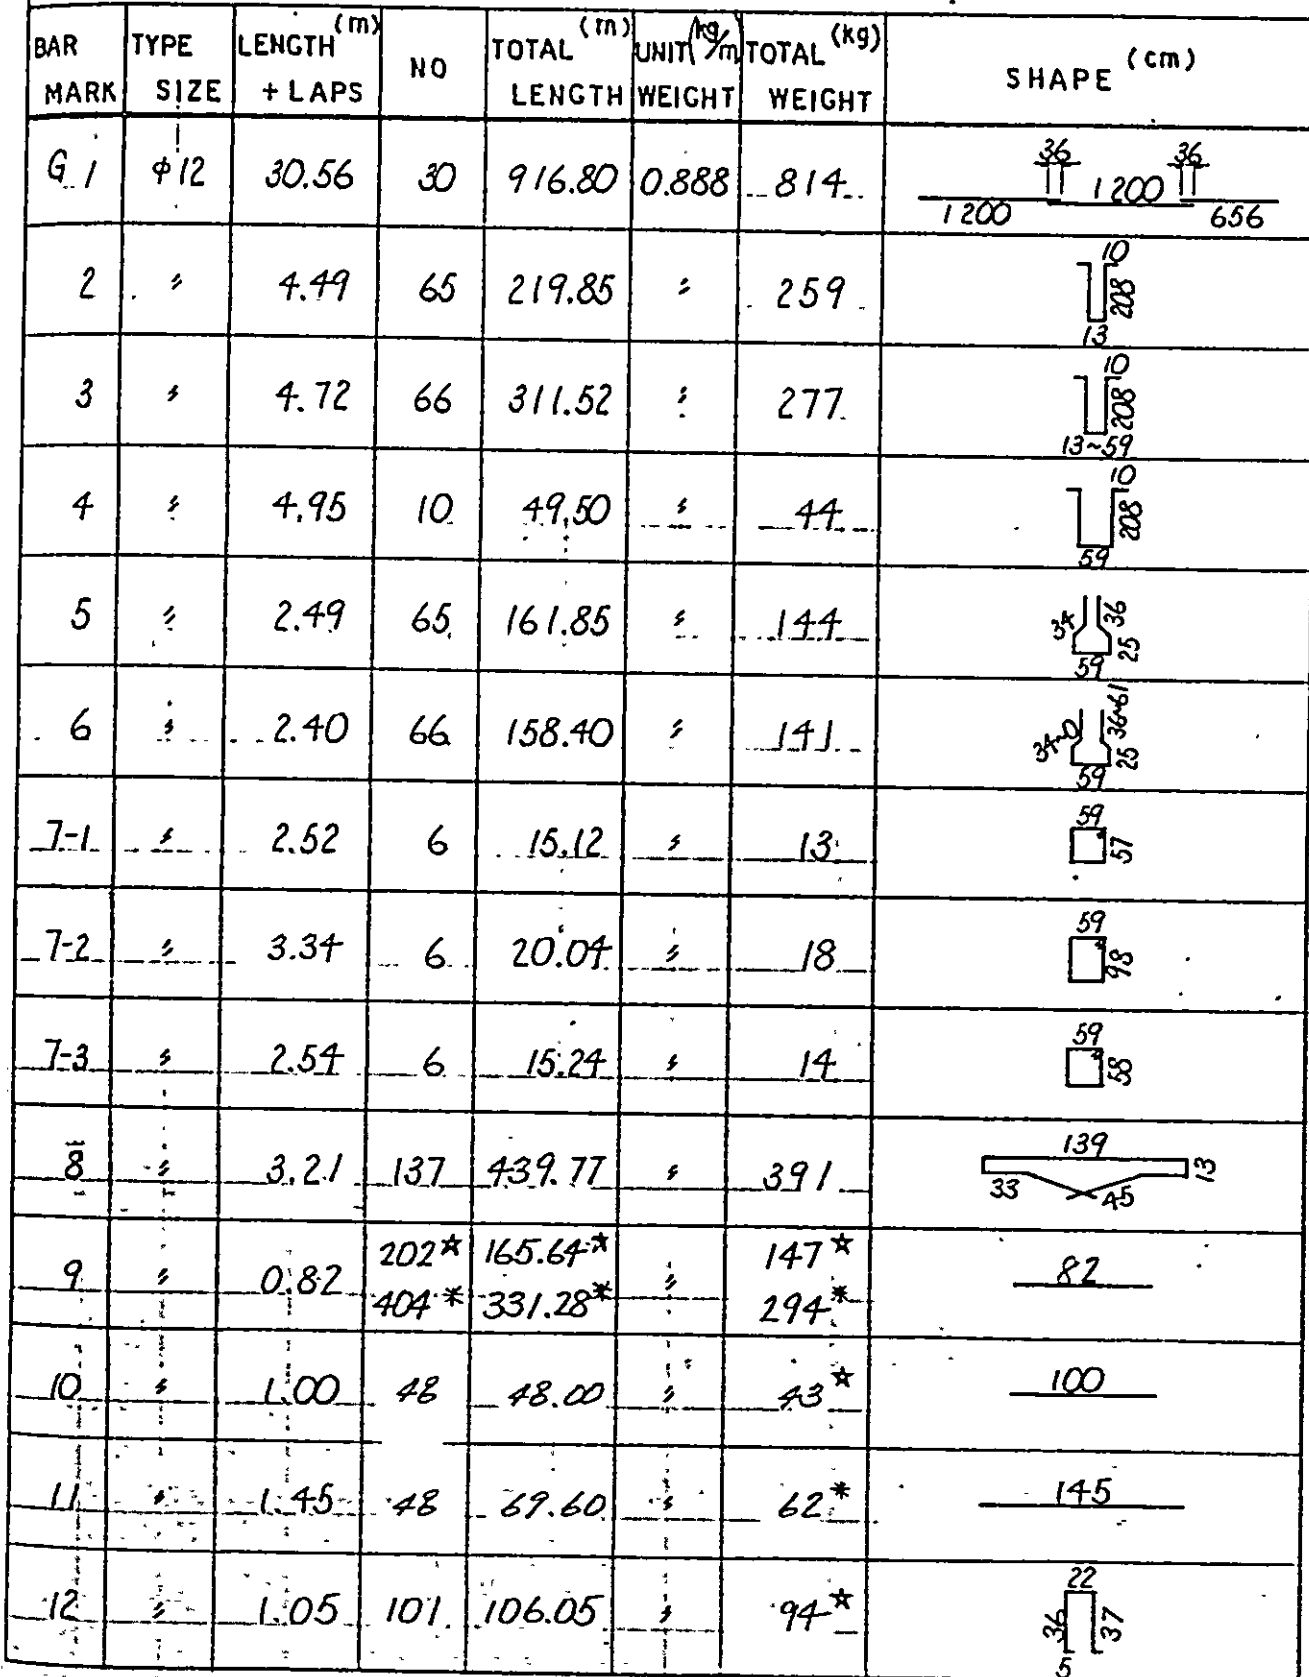 BAR MARK TYPE SIZE LENGTH (m) + LAPS NO TOTAL (m) LENGTH UNIT (kg/m) WEIGHT TOTAL (kg) WEIGHT SHAPE (cm)
G 1 φ12 30.56 30 916.80 0.888 814 36 36 1200 1200 656
2 〃 4.49 65 219.85 〃 259 10 208 13
3 〃 4.72 66 311.52 〃 277 10 208 13~59
4 〃 4.95 10 49.50 〃 44 10 208 59
5 〃 2.49 65 161.85 〃 144 34 36 25 59
6 〃 2.40 66 158.40 〃 141 34~0 36~61 25 59
7-1 〃 2.52 6 15.12 〃 13 59 57
7-2 〃 3.34 6 20.04 〃 18 59 98
7-3 〃 2.54 6 15.24 〃 14 59 58
8 〃 3.21 137 439.77 〃 391 139 13 33 45
9 〃 0.82 202☆ 165.64☆ 〃 147☆ 82
404* 331.28* 294*
10 〃 1.00 48 48.00 〃 43☆ 100
11 〃 1.45 48 69.60 〃 62* 145
12 〃 1.05 101 106.05 〃 94☆ 22 36 37 5